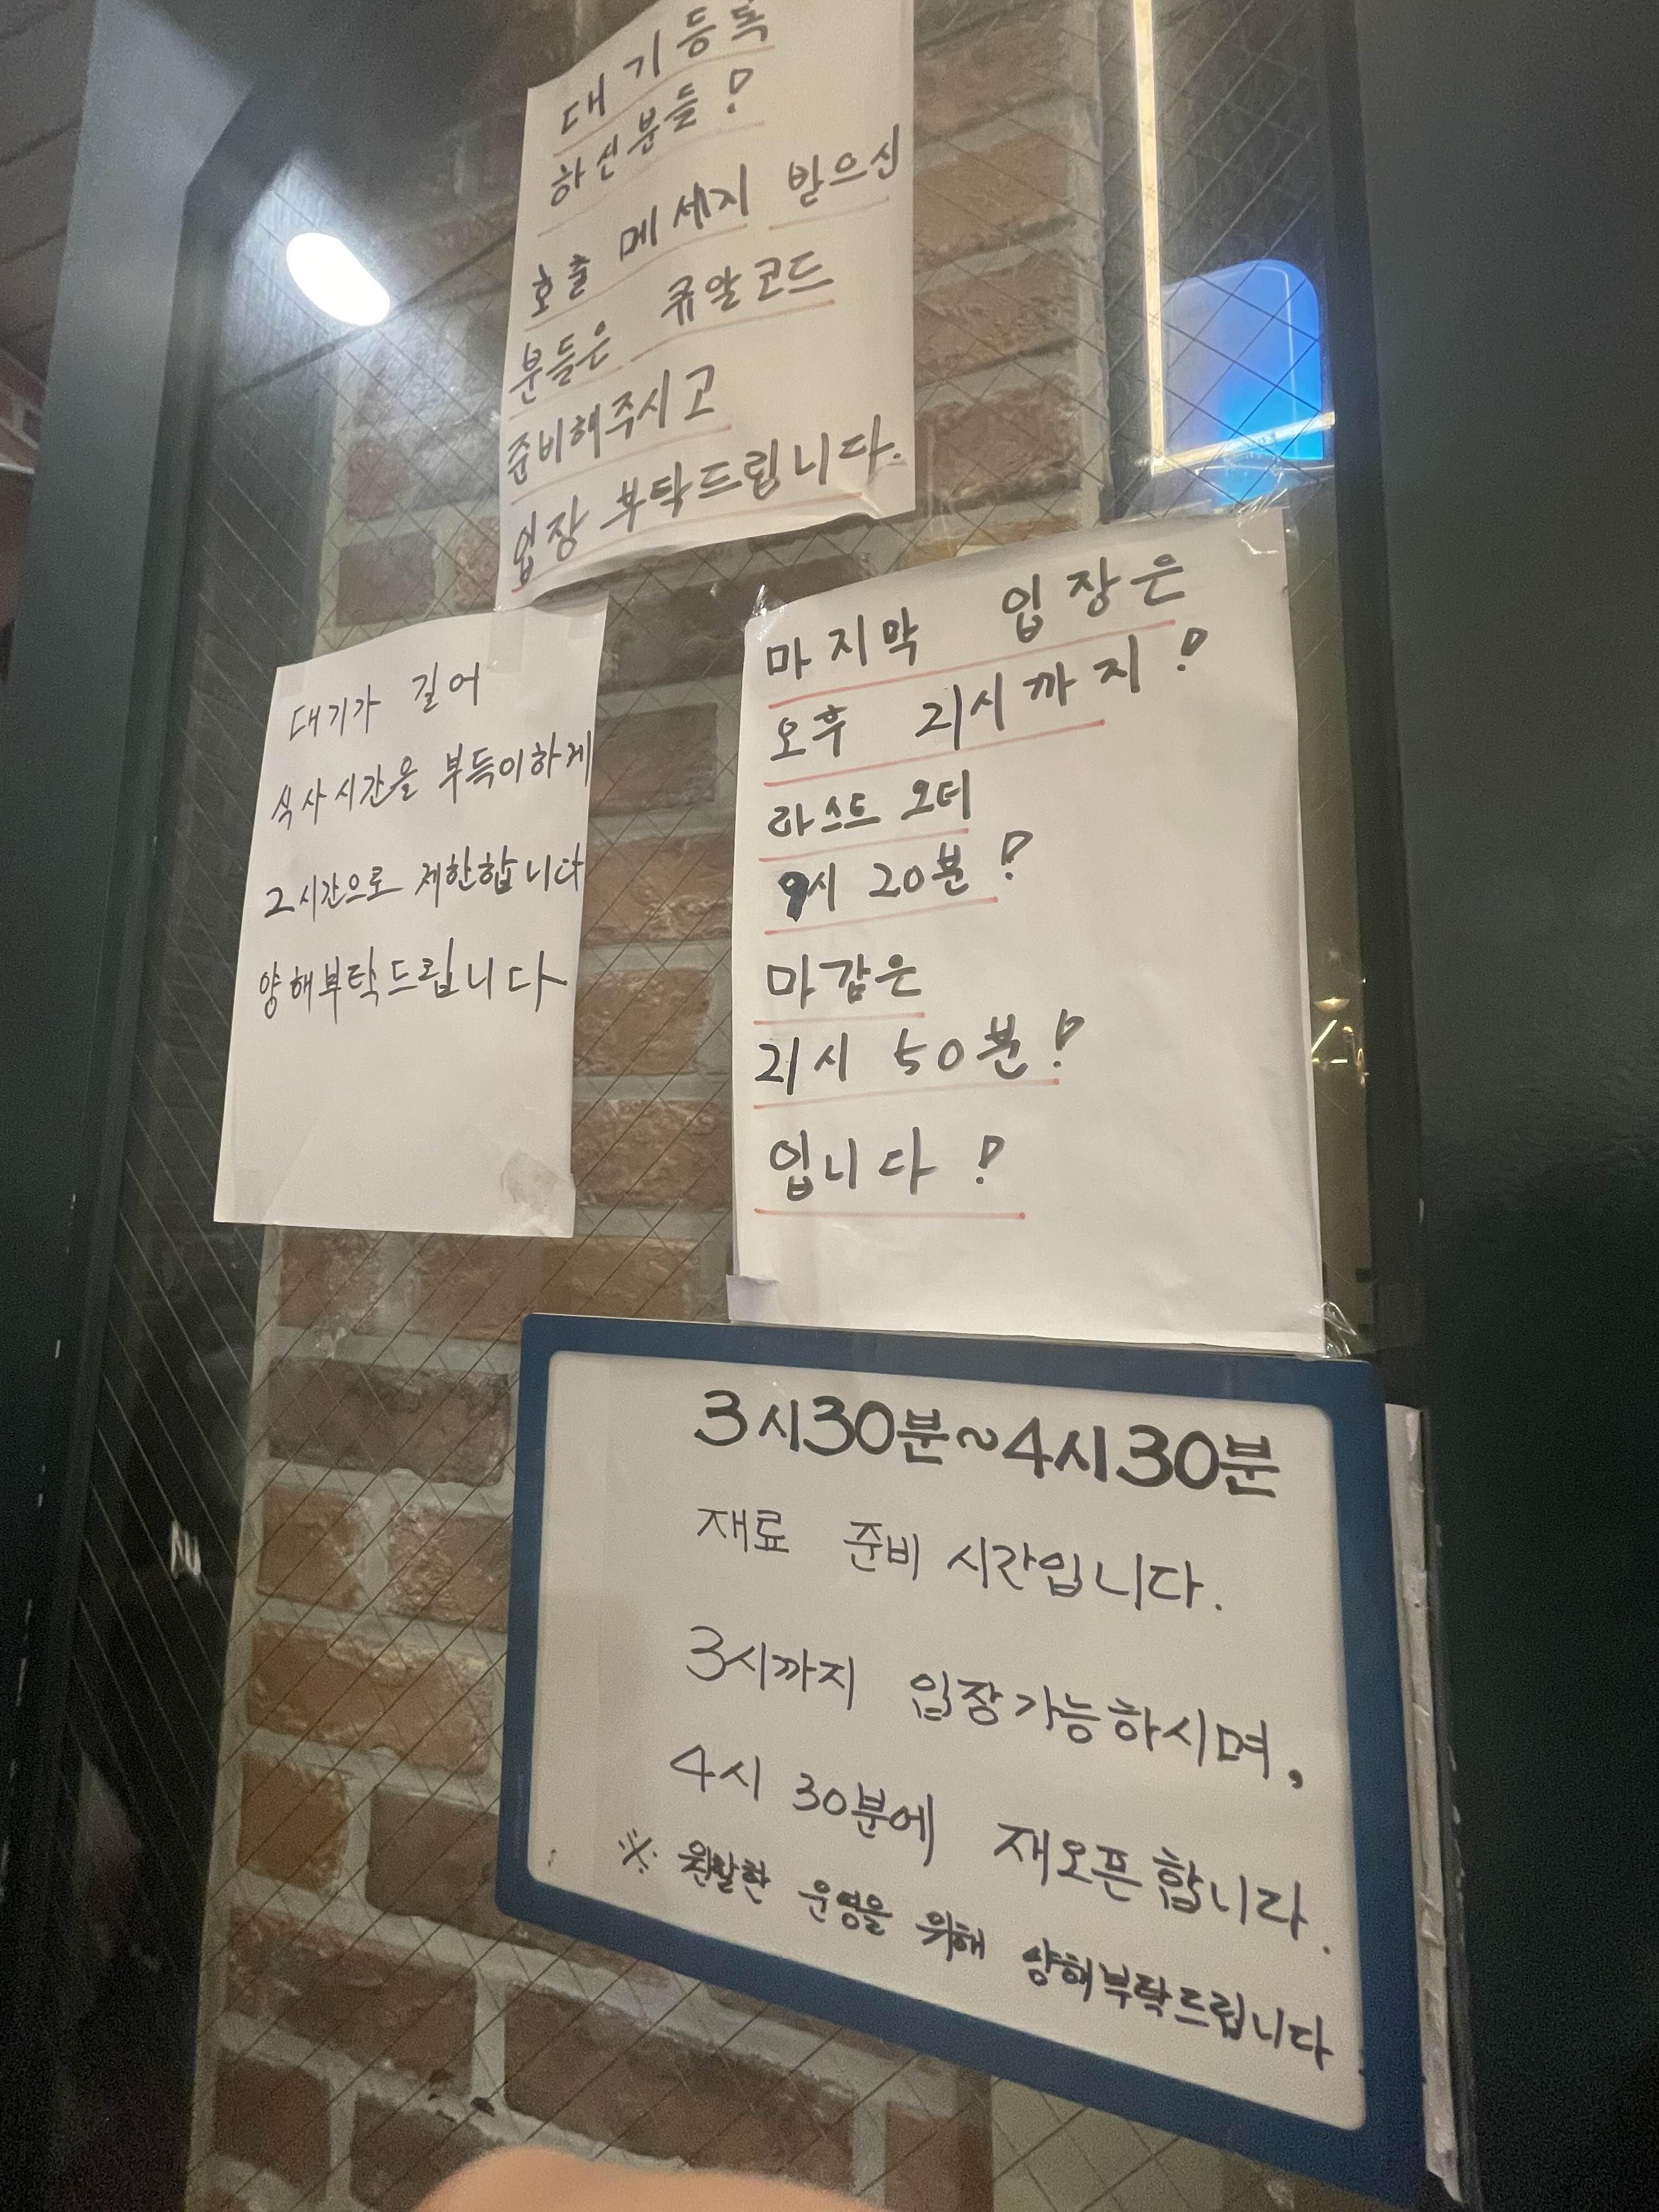 대기등록
하신분들!
호출 메세지 받으신
분들은 큐알코드
준비해주시고
입장 부탁드립니다.
대기가 길어
식사시간을 부득이하게
2시간으로 제한합니다
양해부탁드립니다
마지막 입장은
오후 21시까지!
라스트 오더
9시 20분!
마감은
21시 50분!
입니다!
3시30분~4시30분
재료 준비 시간입니다.
3시까지 입장가능하시며,
4시 30분에 재오픈합니다.
※ 원활한 운영을 위해 양해부탁드립니다